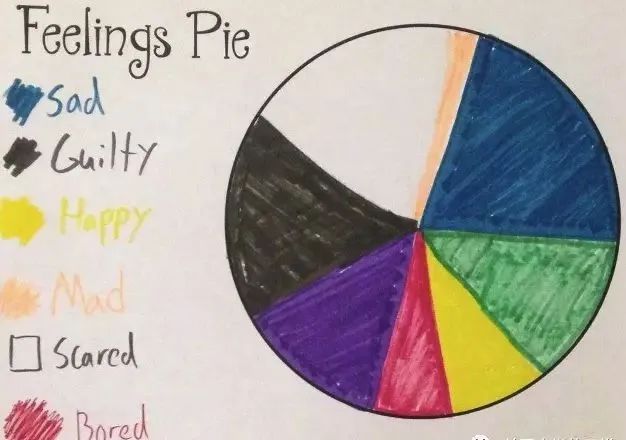 Feelings Pie
Sad
Guilty
Happy
Mad
Scared
Bored